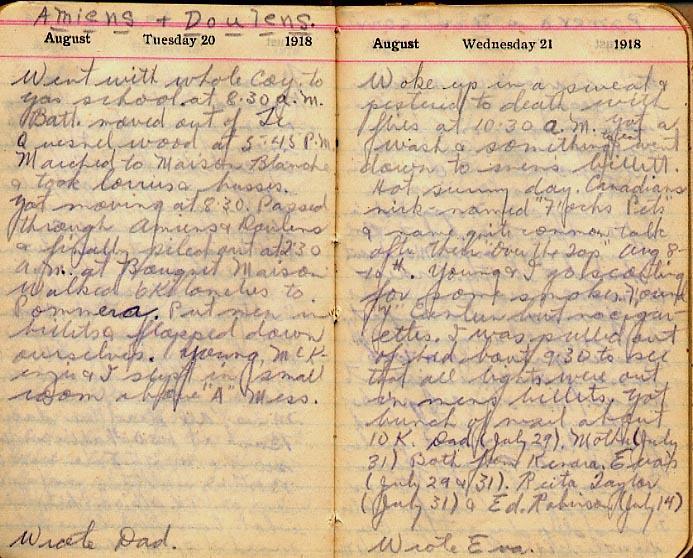 Amiens & Doulens.
August Tuesday 20 1918
Went with whole Coy to
gas school at 8:30 a.m.
Batt. moved out of Le
Quesnel wood at 5:45 P.M.
Marched to Maison Blanche
& took lorries & busses.
Got moving at 8:30. Passed
through Amiens & Doulens
& finally piled out at 2:30
a.m. at Bouquet Maison
Walked 6 Kilometres to
Pommera. Put men in
billets & flopped down
ourselves. Young, McK-
enzie & I slept in small
room above "A" Mess.
Wrote Dad.
August Wednesday 21 1918
Woke up in a sweat &
pestered to death with
flies at 10:30 a.m. Got a
wash & something & went
down to men's billett.
Hot sunny day. Canadians
nick-named "Fochs Pets"
& name quite common talk
after their "Over the Top" Aug 8-
10th. Young & I go scouting
for some smokes. Found
"Y" Canteen but no cigar-
ettes. I was pulled out
of bed bout 9:30 to see
that all lights were out
in men's billets. Got
bunch of mail about
10 K. Dad (July 29), Mother (July
31) Both from Kenora. Eva's
(July 29 & 31). Reita Taylor
(July 31) & Ed. Robinson (July 14)
Wrote Eva.